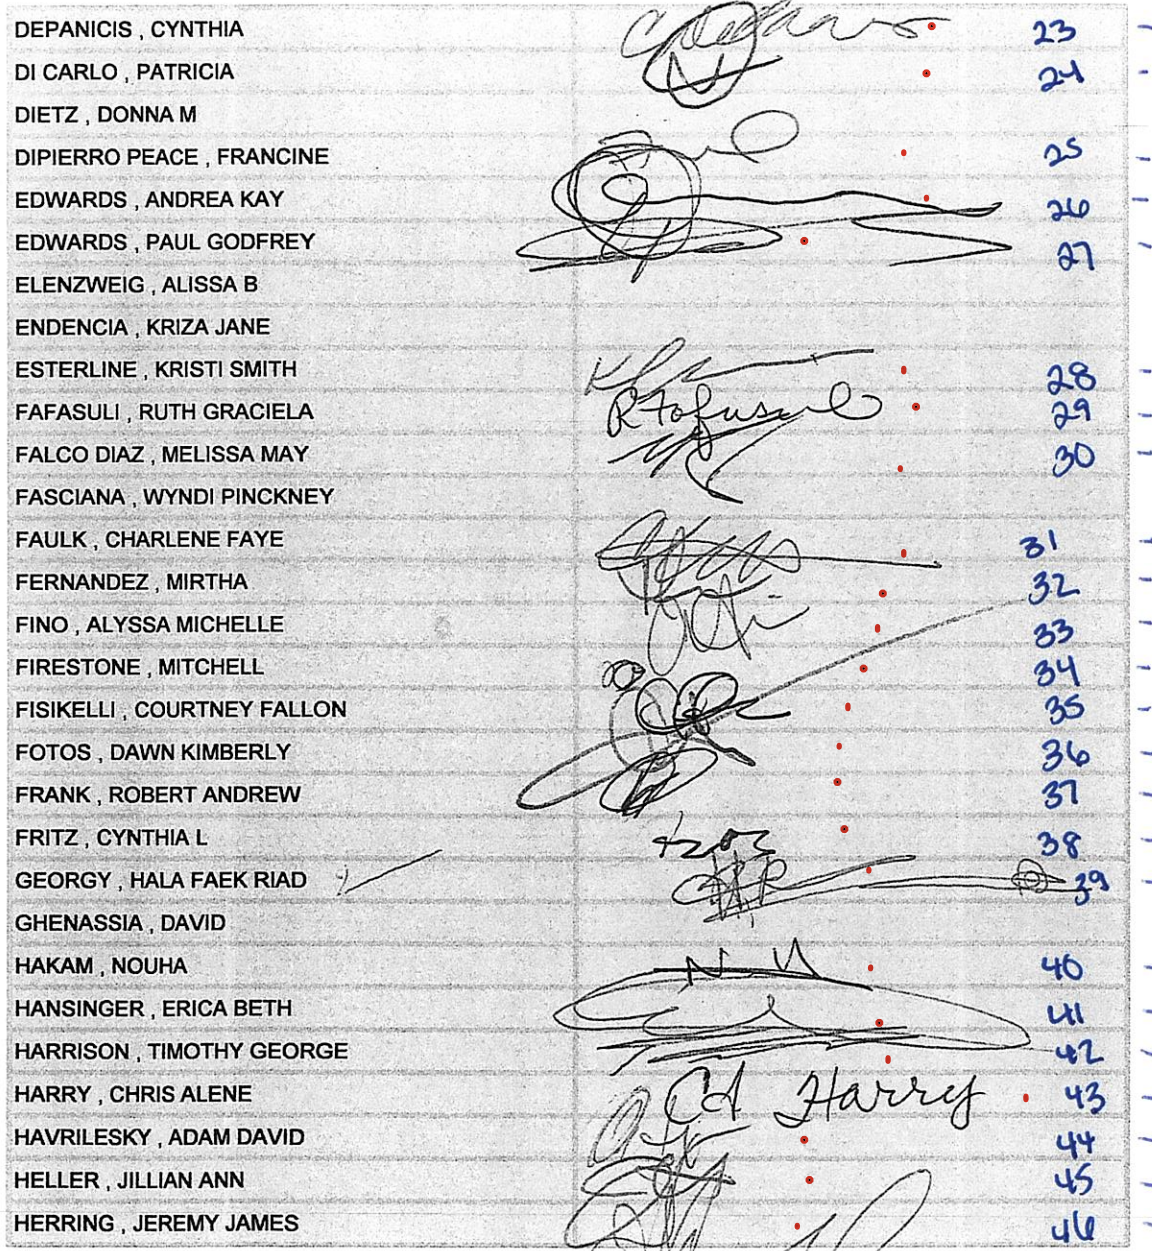 DEPANICIS , CYNTHIA 23
DI CARLO , PATRICIA 24
DIETZ , DONNA M
DIPIERRO PEACE , FRANCINE 25
EDWARDS , ANDREA KAY 26
EDWARDS , PAUL GODFREY 27
ELENZWEIG , ALISSA B
ENDENCIA , KRIZA JANE
ESTERLINE , KRISTI SMITH 28
FAFASULI , RUTH GRACIELA R Fafasuli 29
FALCO DIAZ , MELISSA MAY 30
FASCIANA , WYNDI PINCKNEY
FAULK , CHARLENE FAYE 31
FERNANDEZ , MIRTHA 32
FINO , ALYSSA MICHELLE 33
FIRESTONE , MITCHELL 34
FISIKELLI , COURTNEY FALLON 35
FOTOS , DAWN KIMBERLY 36
FRANK , ROBERT ANDREW 37
FRITZ , CYNTHIA L 38
GEORGY , HALA FAEK RIAD 39
GHENASSIA , DAVID
HAKAM , NOUHA 40
HANSINGER , ERICA BETH 41
HARRISON , TIMOTHY GEORGE 42
HARRY , CHRIS ALENE CA Harry 43
HAVRILESKY , ADAM DAVID 44
HELLER , JILLIAN ANN 45
HERRING , JEREMY JAMES 46